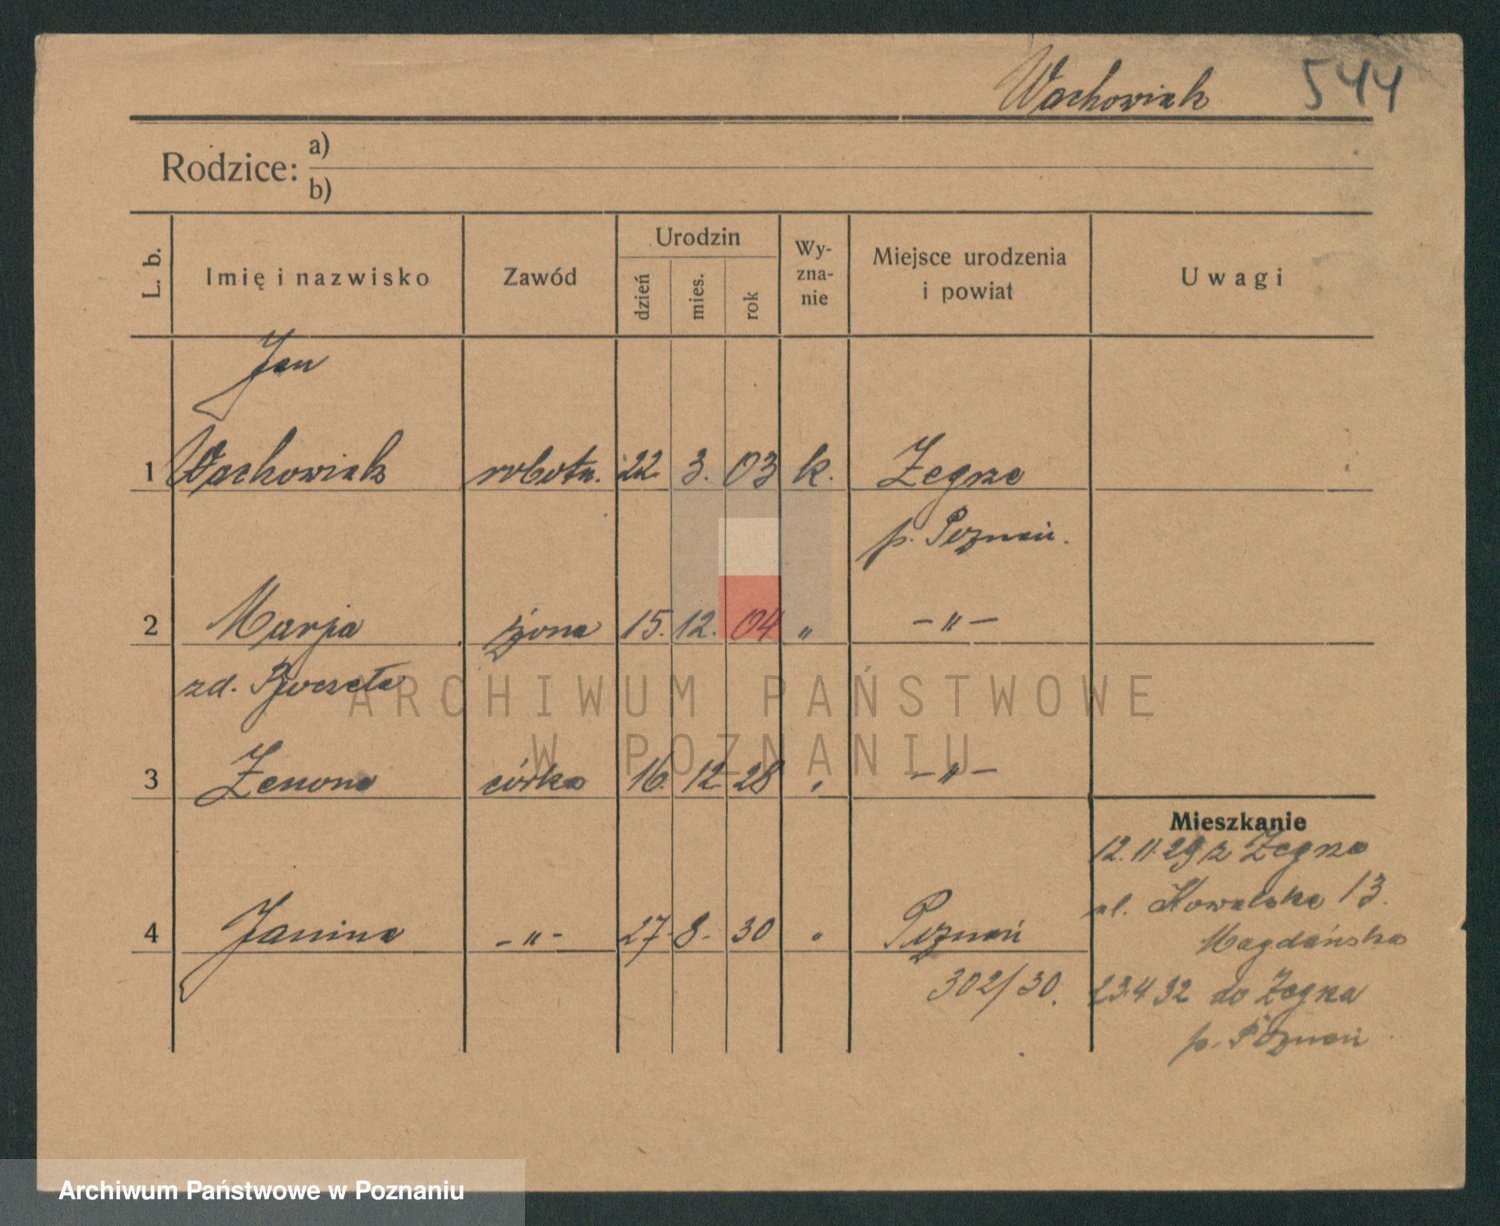 Wachowiak 544
Rodzice: a)
b)
L. b. Imię i nazwisko Zawód Urodzin dzień mies. rok Wy-zna-nie Miejsce urodzenia i powiat Uwagi
Jan
1 Wachowiak robotn. 22. 3. 03 k. Żegrze
p. Poznań.
2 Marja żona 15. 12. 04 " -"-
zd.
3 Zenona córka 16. 12 28 " -"-
Mieszkanie
12.11.29 z Żegrza
ul. Kowalska 13.
4 Janina -"- 27. 8. 30 " Poznań
Magdańska
302/30.
23.4 32 do Żegrza
p. Poznań
ARCHIWUM PAŃSTWOWE
W POZNANIU
Archiwum Państwowe w Poznaniu